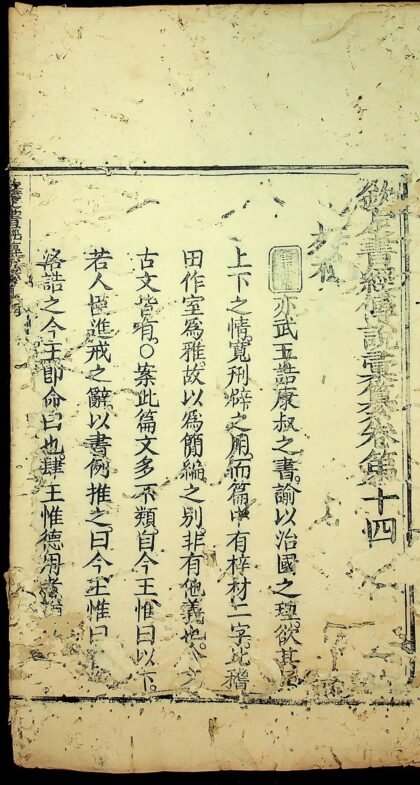 欽定書經傳說彙纂卷第十四
梓材
亦武王誥康叔之書諭以治國之理欲其
上下之情寬刑辟之用而篇中有梓材二字比稽
田作室為雅故以為簡編之別非有他義也今文
古文皆有○案此篇文多不類自今王惟曰以下
若人臣進戒之辭以書例推之曰今王惟曰
洛誥之今王即命曰也肆王惟德用者猶